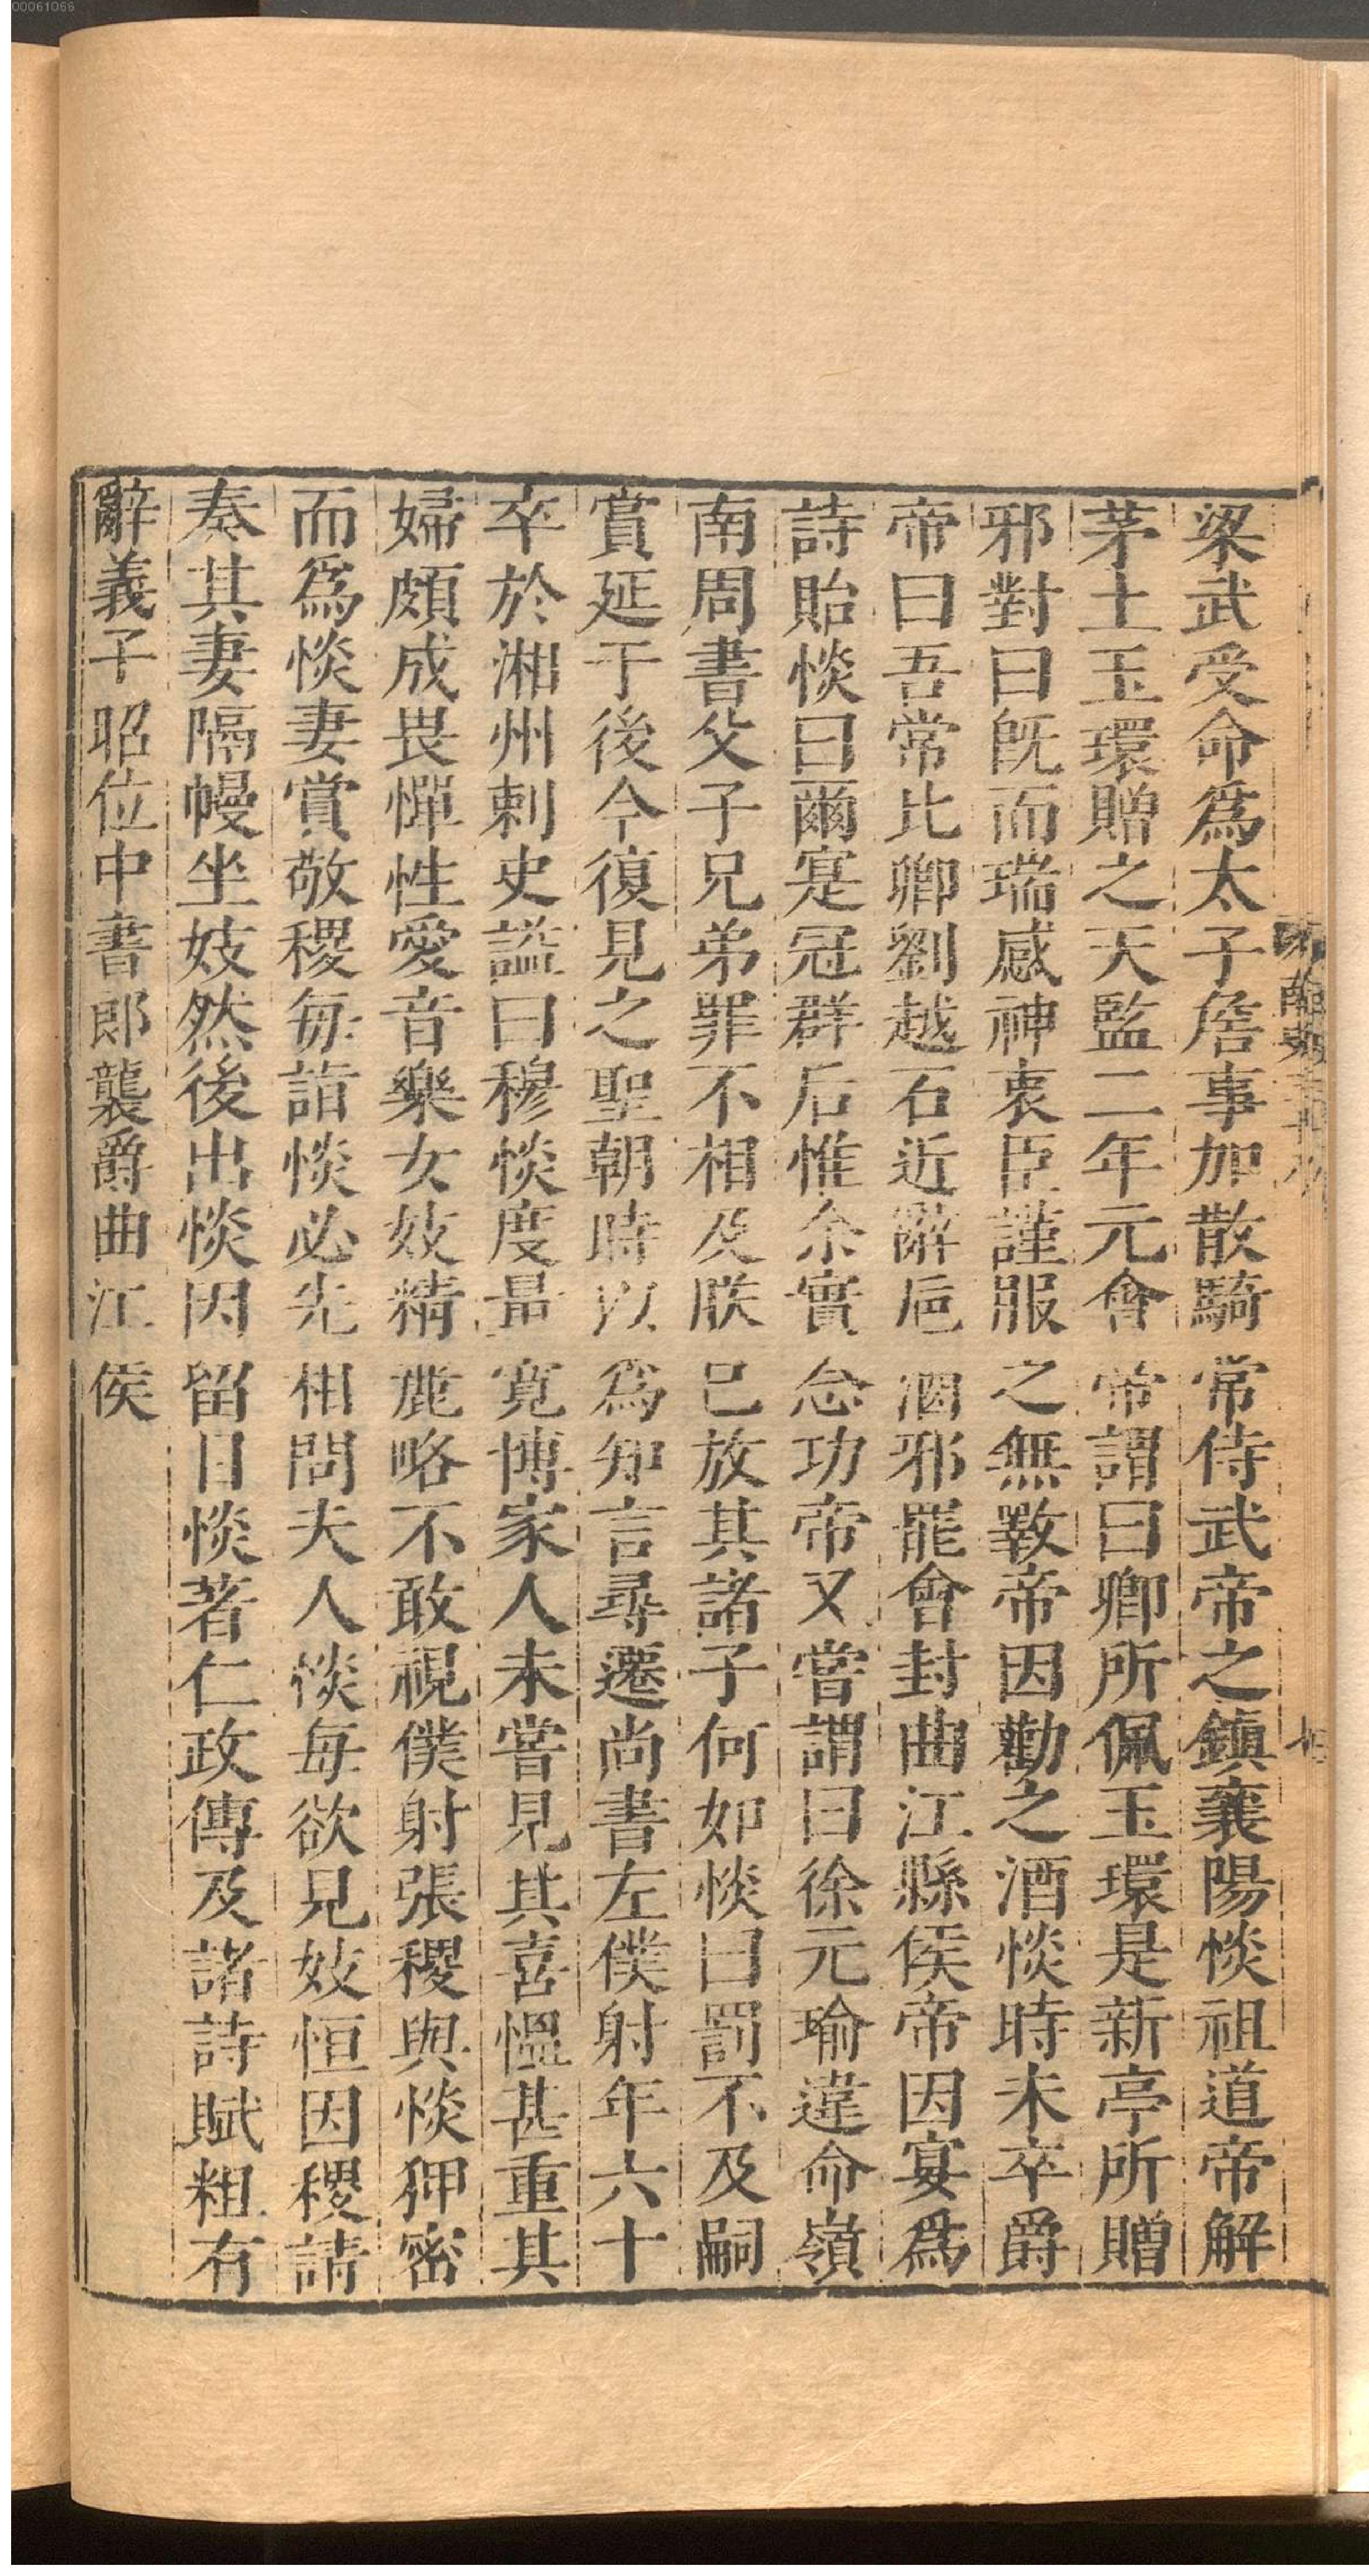 00061066
梁武受命爲太子詹事加散騎常侍武帝之鎮襄陽惔祖道帝解
茅土玉環贈之天監二年元會帝謂曰卿所佩玉環是新亭所贈
邪對曰旣而瑞感神衷臣謹服之無斁帝因勸之酒惔時未卒爵
帝曰吾常比卿劉越石近辭巵酒邪罷會封曲江縣侯帝因宴爲
詩貽惔曰爾寔冠群后惟余實念功帝又嘗謂曰徐元瑜違命嶺
南周書父子兄弟罪不相及朕已放其諸子何如惔曰罰不及嗣
賞延于後今復見之聖朝時以爲知言尋遷尚書左僕射年六十
卒於湘州刺史謚曰穆惔度量寬博家人未嘗見其喜慍甚重其
婦頗成畏憚性愛音樂女妓精麗略不敢視僕射張稷與惔狎密
而爲惔妻賞敬稷每詣惔必先相問夫人惔每欲見妓恒因稷請
奏其妻隔幔坐妓然後出惔因留目惔著仁政傳及諸詩賦粗有
辭義子昭位中書郎襲爵曲江侯